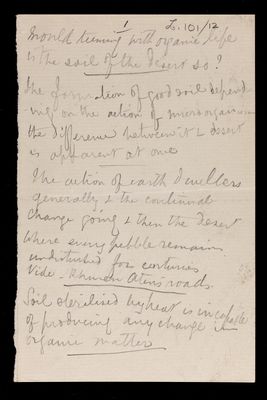 1
L.101/12
mould teeming with organic life
is the soil of the desert so?
The formation of good soil depend
ing on the action of microorganism
the difference between it & desert
is apparent at once
The action of earth dwellers
generally & the continual
change going & then the desert
where every pebble remains
undisturbed for centuries
Vide - Khuen Atens roads.
Soil sterilised by heat is incapable
of producing any change in
organic matter